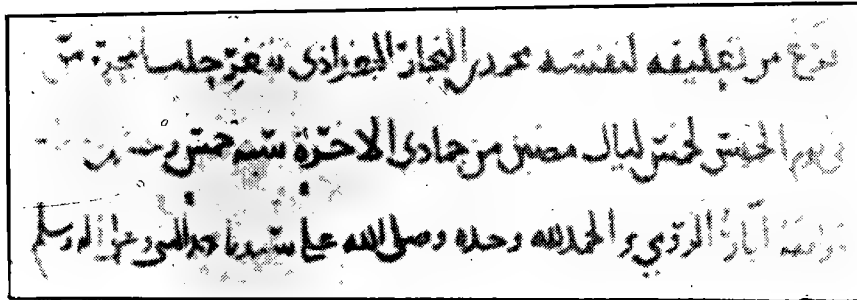 فرغ من تعليقه لنفسه محمد بن النجار البغدادي بثغر حلب
في يوم الخميس لخمس ليال مضين من جمادى الاخرة سنة خمس و من
ايار الرومي والحمد لله وحده وصلى الله على سيدنا محمد النبي وعلى اله وسلم